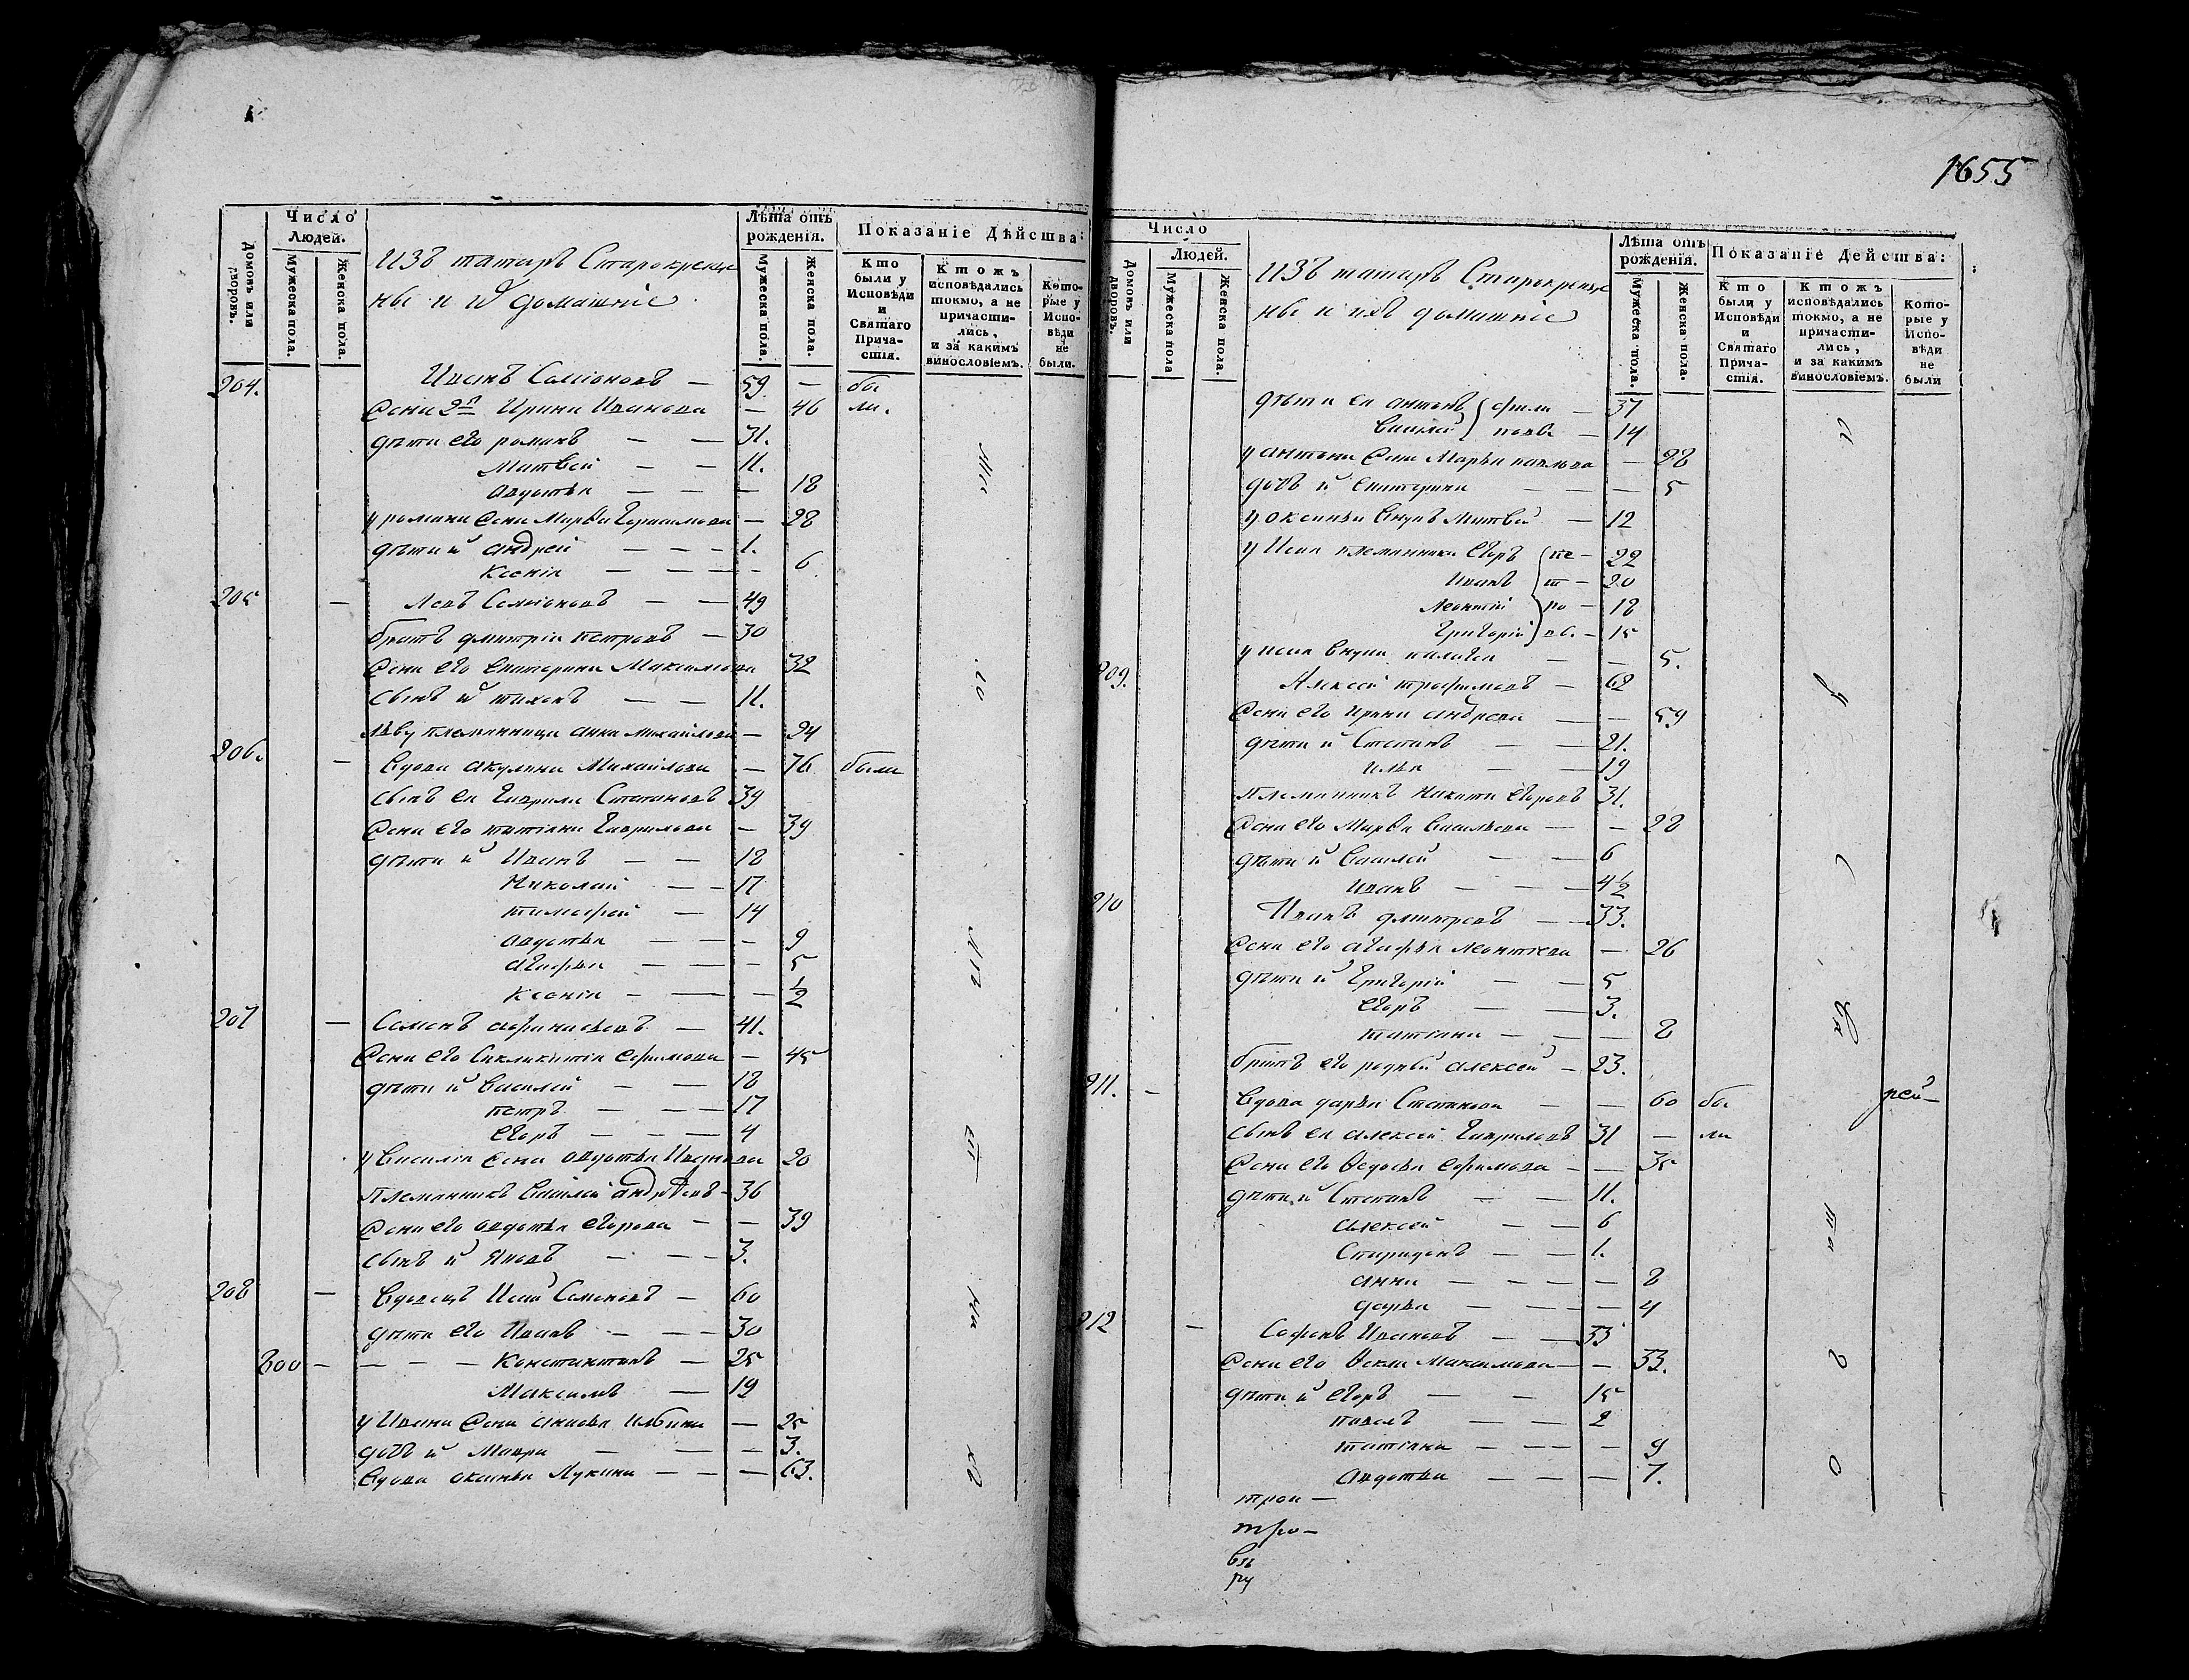 1655
Число
Людей.
Домовъ или дворовъ.
Мужеска пола.
Женска пола.
Лѣта отъ рожденія.
Мужеска пола.
Женска пола.
Показаніе Дѣйства:
Кто были у Исповѣди и Святаго Причастія.
Ктожъ исповѣдались токмо, а не причастились, и за какимъ винословіемъ.
Которые у Исповѣди не были.
изъ татаръ Старокреще
ны и их домашніе
204. Иванъ Самсоновъ — 59. — бы
жена 2я Ирина Иванова — 46 ли.
дѣти его романъ — — 31.
Матвей — — 11.
авдотья — — — 18
у романа жена Марѳа Герасимова — 28
дѣти их андрей — — — 1.
ксенія — — — — 6
205 — Левъ Семіоновъ — — 49
братъ дмитріи петровъ — 30
жена его екатерина Максимова 32
сынъ их тихонъ — — 11.
Льву племянница анна михайлова — 24
206. — вдова акулина Михайлова — 76 были
сынъ ея гаврила Степановъ 39
жена его татіана гаврилова — 39
дѣти их Иванъ — — 18
Николай — — 17
тимофей — 14
авдотья — — — 9
агафья — — — 5
ксенія — — — 1/2
207 — Семенъ афанасьевъ — 41.
жена его Гликантія ефимова — 45
дѣти их василей — — 18
петръ — — — 17
егоръ — — — 4
у василія жена авдотья Иванова 20
племянникъ василей андрѣевъ — 36
жена его авдотья егорова — — 39
сынъ их яковъ — — — 3.
208 — вдовецъ Исай Семеновъ — 60
дѣти его Иванъ — — — 30
800 — — — — Константинъ — 25
Максимъ — 19
у Ивана жена анисья ильина — 25
дочь их мавра — — — 3.
вдова оксинья Лукина — — — 63.
Число
Людей.
Домовъ или дворовъ.
Мужеска пола
Женска пола.
Лѣта отъ рожденія.
Мужеска пола.
Женска пола.
Показаніе Действа:
Кто были у Исповѣди и Святаго Причастія.
Ктожъ исповѣдались токмо, а не причастились, и за какимъ винословіемъ.
Которые у Исповѣди не были
изъ татаръ Старокреще
ны и ихъ домашніе
дѣти ея антонъ фили — 37
василей повы — 14
у антона жена Марья павлова — 28
дочь их екатерина — — — 5
у оксиньи внукъ матвей — 12
у Исая племянники егоръ пе — 22
иванъ т — 20
леонтій ро — 18
григорій вы. — 15
у исая внука пелагея — — 5.
209. Алексей трофимовъ — 62
жена его ирина андреева — — 59
дѣти их Степанъ — — 21.
илья — — 19
племянникъ никита егоровъ 31.
жена его Марѳа васильева — — 28
дѣти их василей — — 6
иванъ — — — 4 1/2
210 Иванъ дмитревъ — — 33.
жена его агафья леонтіева — 26
дѣти их григорій — — 5
егоръ — — 3.
татіана — — — 8
братъ его родный алексей — 23.
211. — вдова дарья Степанова — — 60 бы рей —
сынъ ея алексей гавриловъ 31 — ли
жена его Ѳедосья ефимова — — 35
дѣти их Степанъ — — 11.
алексей — — 6
Спиридонъ — — 1.
анна — — — — 8
дарья — — — — 4
212 — Софонъ Ивановъ — — 33
жена его Ѳекла Максимова — — 33.
дѣти их егоръ — — 15
павелъ — — 2
татіана — — — — 9
авдотья — — — 7.
трои —